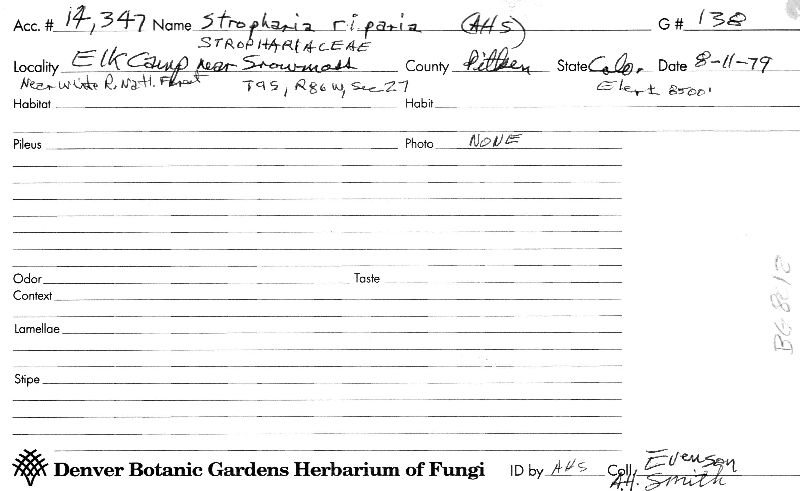 Acc. # 14,347 Name Stropharia riparia (AHS) G # 138
STROPHARIACEAE
Locality Elk Camp near Snowmass County Pitken State Colo. Date 8-11-79
Near White R. Natl. Forest T9S, R86W, Sec 27 Elev ± 8500'
Habitat Habit
Pileus Photo NONE
Odor Taste
Context
Lamellae
Stipe
Denver Botanic Gardens Herbarium of Fungi ID by AHS Coll. Evenson
A.H. Smith